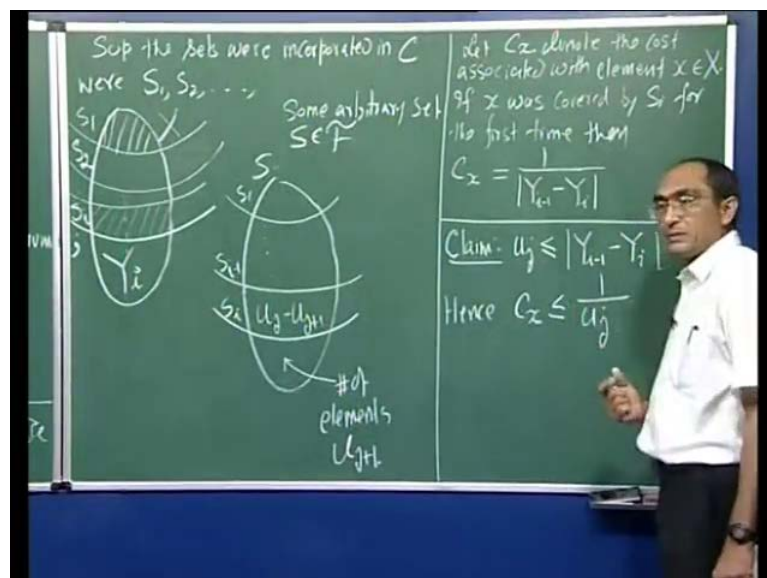 Sup the sets were incorporated in C
were S₁, S₂, ...,
S₁
S₂
Sᵢ
Yᵢ
Some arbitrary set
S ∈ F
S
S₁
Sᵢ₋₁
Sᵢ
Uⱼ - Uⱼ₊₁
# of
elements
Uⱼ₊₁
Let Cx denote the cost
associated with element x ∈ X.
If x was covered by Sᵢ for
the first time then
Cx = 1 / |Yᵢ₋₁ - Yᵢ|
Claim: Uⱼ ≤ |Yᵢ₋₁ - Yᵢ|
Hence Cx ≤ 1 / Uⱼ